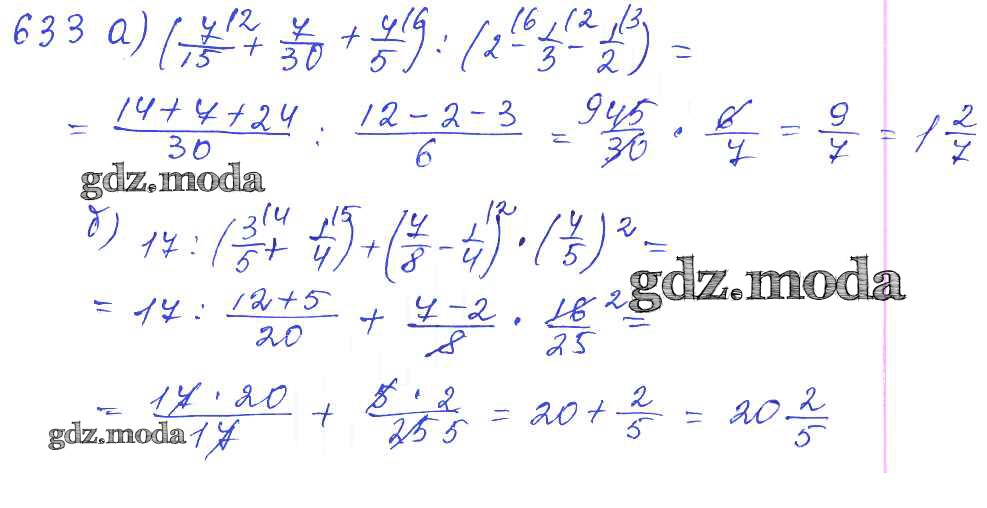 633 а) (7/15 (2 + 7/30 + 4/5 (6) : (2 (6 - 1/3 (2 - 1/2 (3) =
= (14 + 7 + 24)/30 : (12 - 2 - 3)/6 = 9 45/30 · 6/7 = 9/7 = 1 2/7
gdz.moda
б) 17 : (3/5 (4 + 1/4 (5) + (7/8 - 1/4 (2) · (4/5)² =
gdz.moda
= 17 : (12 + 5)/20 + (7 - 2)/8 · 16 2/25 =
= (17 · 20)/17 + (5 · 2)/(25 5) = 20 + 2/5 = 20 2/5
gdz.moda